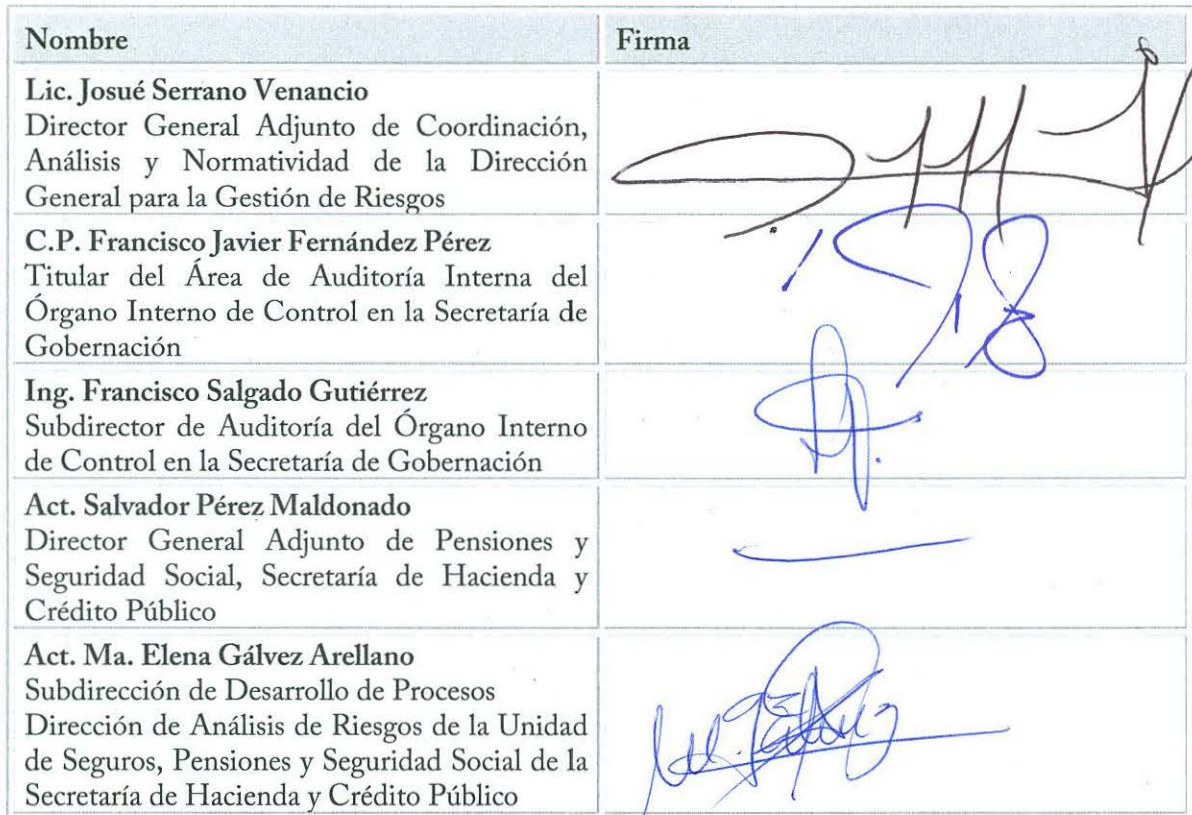 Nombre
Firma
Lic. Josué Serrano Venancio
Director General Adjunto de Coordinación,
Análisis y Normatividad de la Dirección
General para la Gestión de Riesgos
C.P. Francisco Javier Fernández Pérez
Titular del Área de Auditoría Interna del
Órgano Interno de Control en la Secretaría de
Gobernación
Ing. Francisco Salgado Gutiérrez
Subdirector de Auditoría del Órgano Interno
de Control en la Secretaría de Gobernación
Act. Salvador Pérez Maldonado
Director General Adjunto de Pensiones y
Seguridad Social, Secretaría de Hacienda y
Crédito Público
Act. Ma. Elena Gálvez Arellano
Subdirección de Desarrollo de Procesos
Dirección de Análisis de Riesgos de la Unidad
de Seguros, Pensiones y Seguridad Social de la
Secretaría de Hacienda y Crédito Público